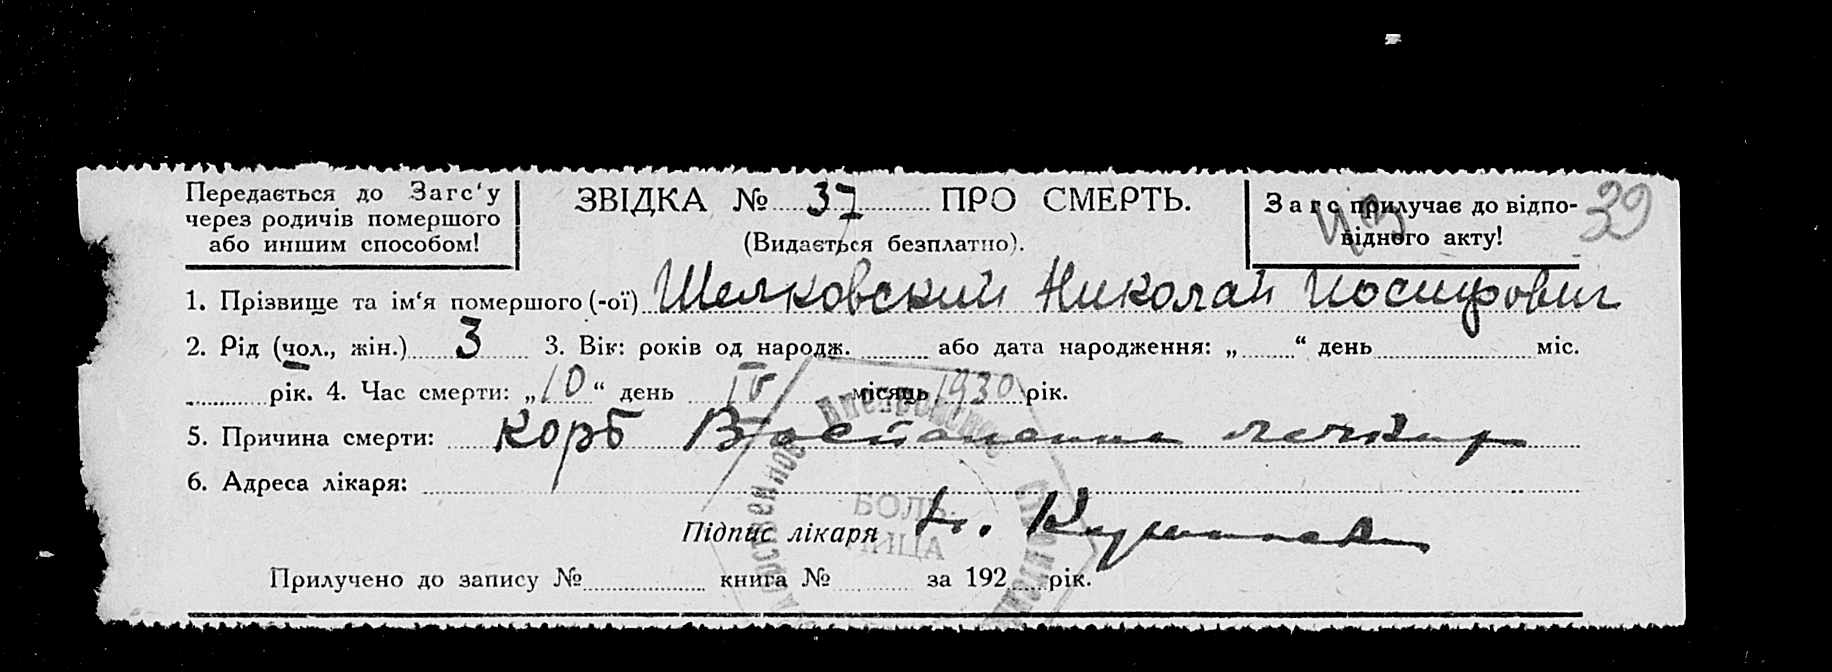 Передається до Загс‘у
через родичів помершого
або иншим способом!
ЗВІДКА № 37 ПРО СМЕРТЬ.
(Видається безплатно).
Загс прилучає до відпо-
відного акту!
39
1. Прізвище та ім‘я помершого (-ої) Шелковский Николай Иосифович
2. Рід (чол., жін.) 3 3. Вік: років од народж. або дата народження: „ “ день міс.
рік. 4. Час смерти: „10“ день IV місяць 1930 рік.
5. Причина смерти: Корь Воспаление
6. Адреса лікаря:
Підпис лікаря
БОЛЬ-
НИЦА
Прилучено до запису № книга № за 192 рік.